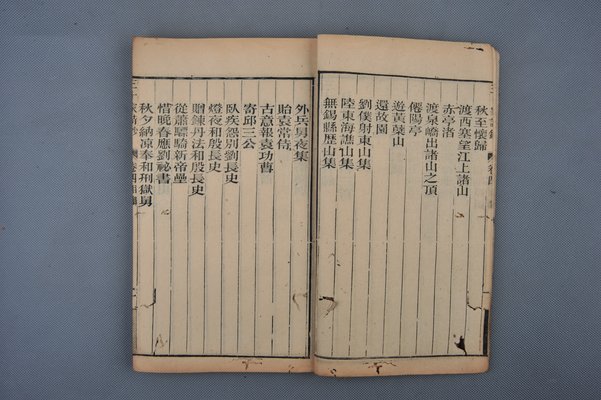 秋至懷歸
渡西塞望江上諸山
赤亭渚
渡泉嶠出諸山之頂
僊陽亭
遊黃蘗山
還故園
劉僕射東山集
陸東海譙山集
無錫縣歷山集
外兵舅夜集
貽袁常侍
古意報袁功曹
寄邱三公
臥疾怨別劉長史
燈夜和殷長史
贈鍊丹法和殷長史
從蕭驃騎新帝壘
惜晚春應劉祕書
秋夕納涼奉和刑獄舅